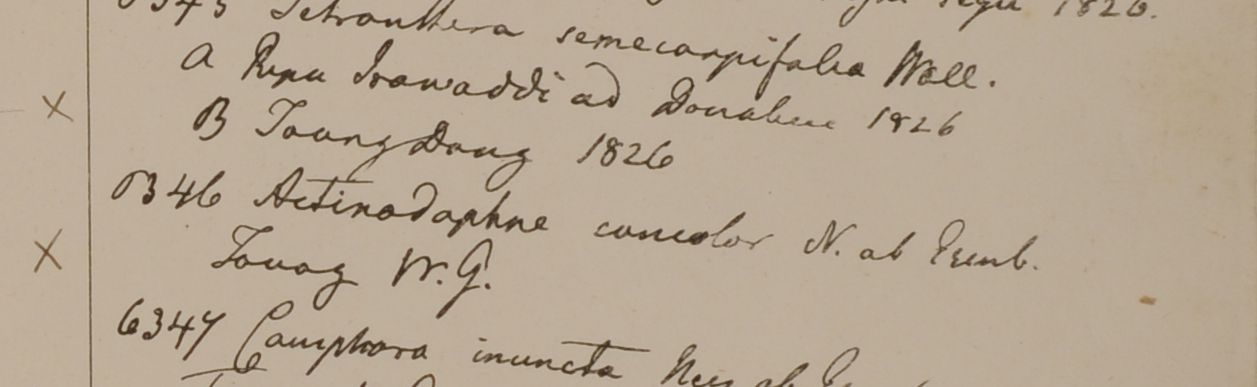 6345 Tetranthera semecarpifolia Wall. 1826.
a Ripa Irawaddi ad Donabue 1826
B Toung Dong 1826
6346 Actinodaphne concolor N. ab Esenb.
Tavoy W.G.
6347 Camphora inuncta Nees ab